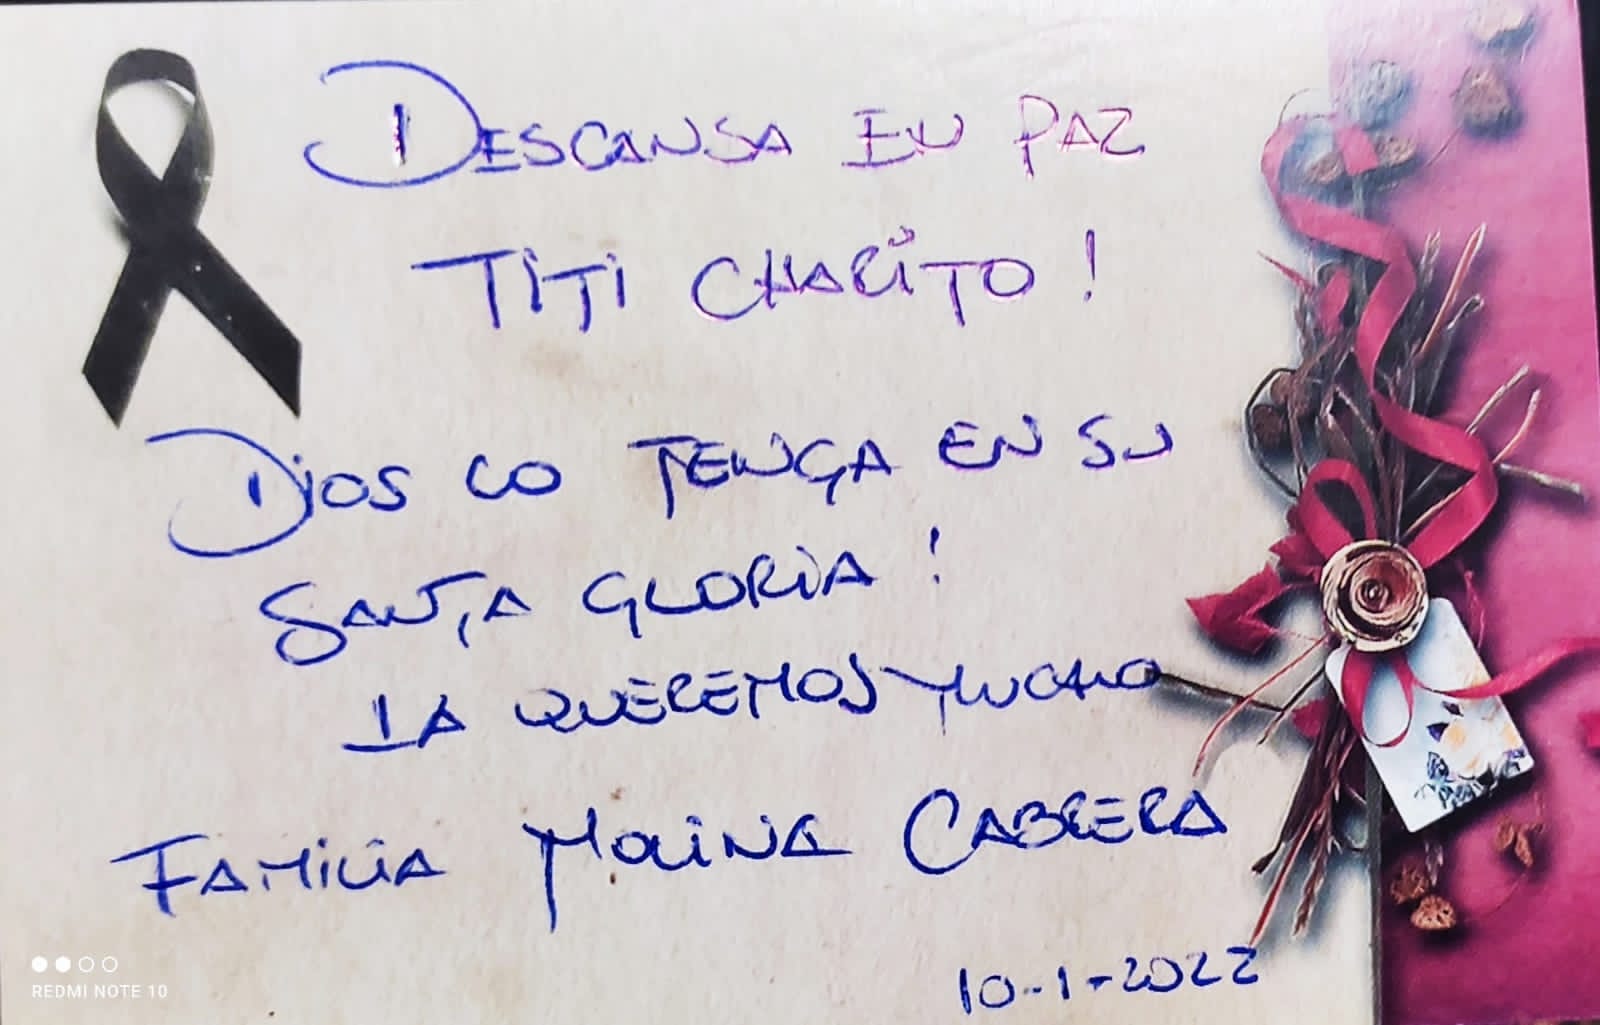 DESCANSA EN PAZ
TITI CHARITO!
DIOS LO TENGA EN SU
SANTA GLORIA!
LA QUEREMOS MUCHO
FAMILIA MOLINA CABRERA
10-1-2022
REDMI NOTE 10